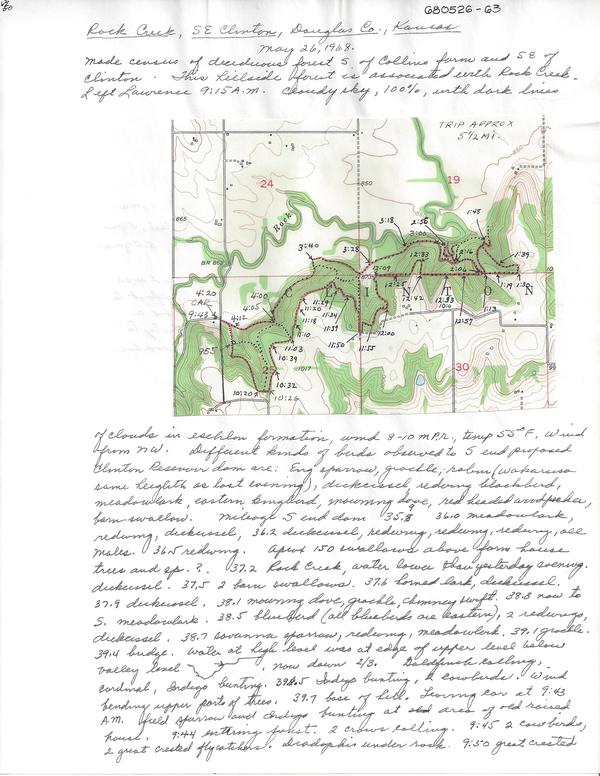 680526-63
Rock Creek, SE Clinton, Douglas Co., Kansas
May 26, 1968.
Made census of deciduous forest S of Collins farm and SE of
Clinton. This hillside forest is associated with Rock Creek.
Left Lawrence 9:15 A.M. Cloudy sky, 100%, with dark lines
TRIP APPROX
5 1/2 MI.
24
19
850
850
865
Rock
BR 862
3:40
3:28
3:18
2:56
3:00
1:48
2:16
1:39
12:09
12:33
2:06
1:19
1:30
870
4:20
CAR
9:43
4:12
4:05
4:00
C L I N T O N
11:29
11:20
11:18
11:10
11:34
11:39
12:25
12:42
12:53
1:13
12:57
11:50
11:55
12:00
11:03
10:39
955
25
1017
30
10:32
10:20
10:26
of clouds in eschlon formation, wind 8-10 M.P.H., temp 55°F, Wind
from NW. Different kinds of birds observed to S end proposed
Clinton Reservoir dam are: Eng sparrow, grackle, robin (Wakarusa
same heighth as last evening), dickcissel, redwing blackbird,
meadowlark, eastern kingbird, mourning dove, red headed woodpecker,
barn swallow. Mileage S end dam 35.9 36.0 meadowlark,
redwing, dickcissel, 36.2 dickcissel, redwing, redwing, redwing, all
males. 36.5 redwing. Aprox 150 swallows above farm house
trees and sp. ?. 37.2 Rock Creek, water lower than yesterday evening.
dickcissel. 37.5 2 barn swallows. 37.6 horned lark, dickcissel.
37.9 dickcissel. 38.1 mourning dove, grackle, chimney swift. 38.3 now to
S. meadowlark. 38.5 bluebird (all bluebirds are eastern), 2 redwings,
dickcissel. 38.7 savanna sparrow, redwing, meadowlark. 39.1 grackle.
39.4 bridge. Water at high level was at edge of upper level below
valley level, now down 2/3. Goldfinch calling,
cardinal, Indigo bunting. 39.5 Indigo bunting, 2 cowbirds. Wind
bending upper parts of trees. 39.7 base of hill. Leaving car at 9:43
A.M. field sparrow and Indigo bunting at old area of old raised
house. 9:44 entering forest. 2 crows calling. 9:45 2 cowbirds,
2 great crested flycatchers. Diadophis under rock. 9:50 great crested